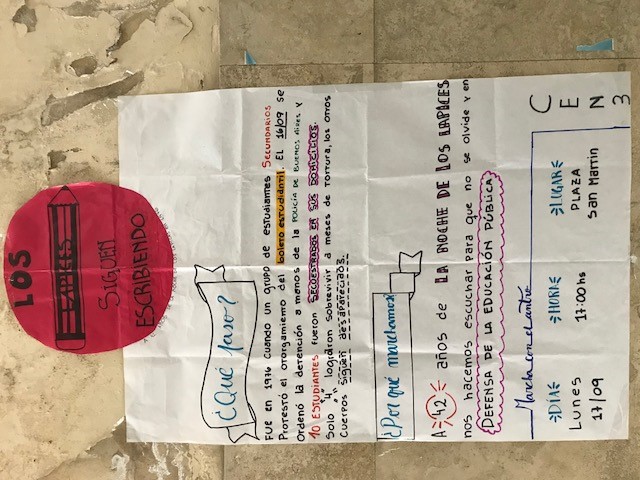 LOS
LAPICES
SIGUEN
ESCRIBIENDO
¿Qué pasó?
FUE en 1976 cuando un grupo de estudiantes SECUNDARIOS
Protestó el otorgamiento del boleto estudiantil. EL 16/09 se
ordenó la detención a menos de la POLICÍA DE BUENOS AIRES Y
10 ESTUDIANTES fueron SECUESTRADOS EN SUS DOMICILIOS.
Solo "4" lograron sobrevivir a meses de tortura, los otros
Cuerpos siguen desaparecidos.
¿Por qué marchamos?
A 42 años de LA NOCHE DE LOS LAPICES
nos hacemos escuchar para que no se olvide y en
DEFENSA DE LA EDUCACIÓN PÚBLICA
Marcha con el centro
DÍA: HORA: LUGAR:
Lunes 17:00hs PLAZA
17/09 San Martin
CEN
3